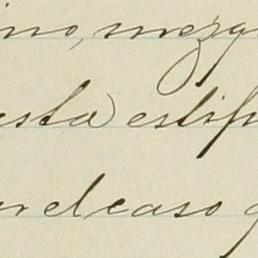 ino, mezq
esta estip
en el caso q